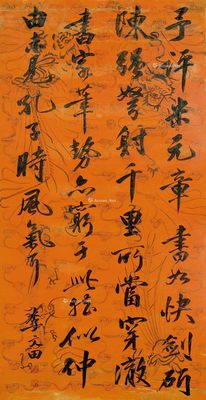 予評米元章書如快劍斫
陳強弩射千里所當穿澈
書家筆勢亦窮于此然似仲
由未見孔子時風氣耳